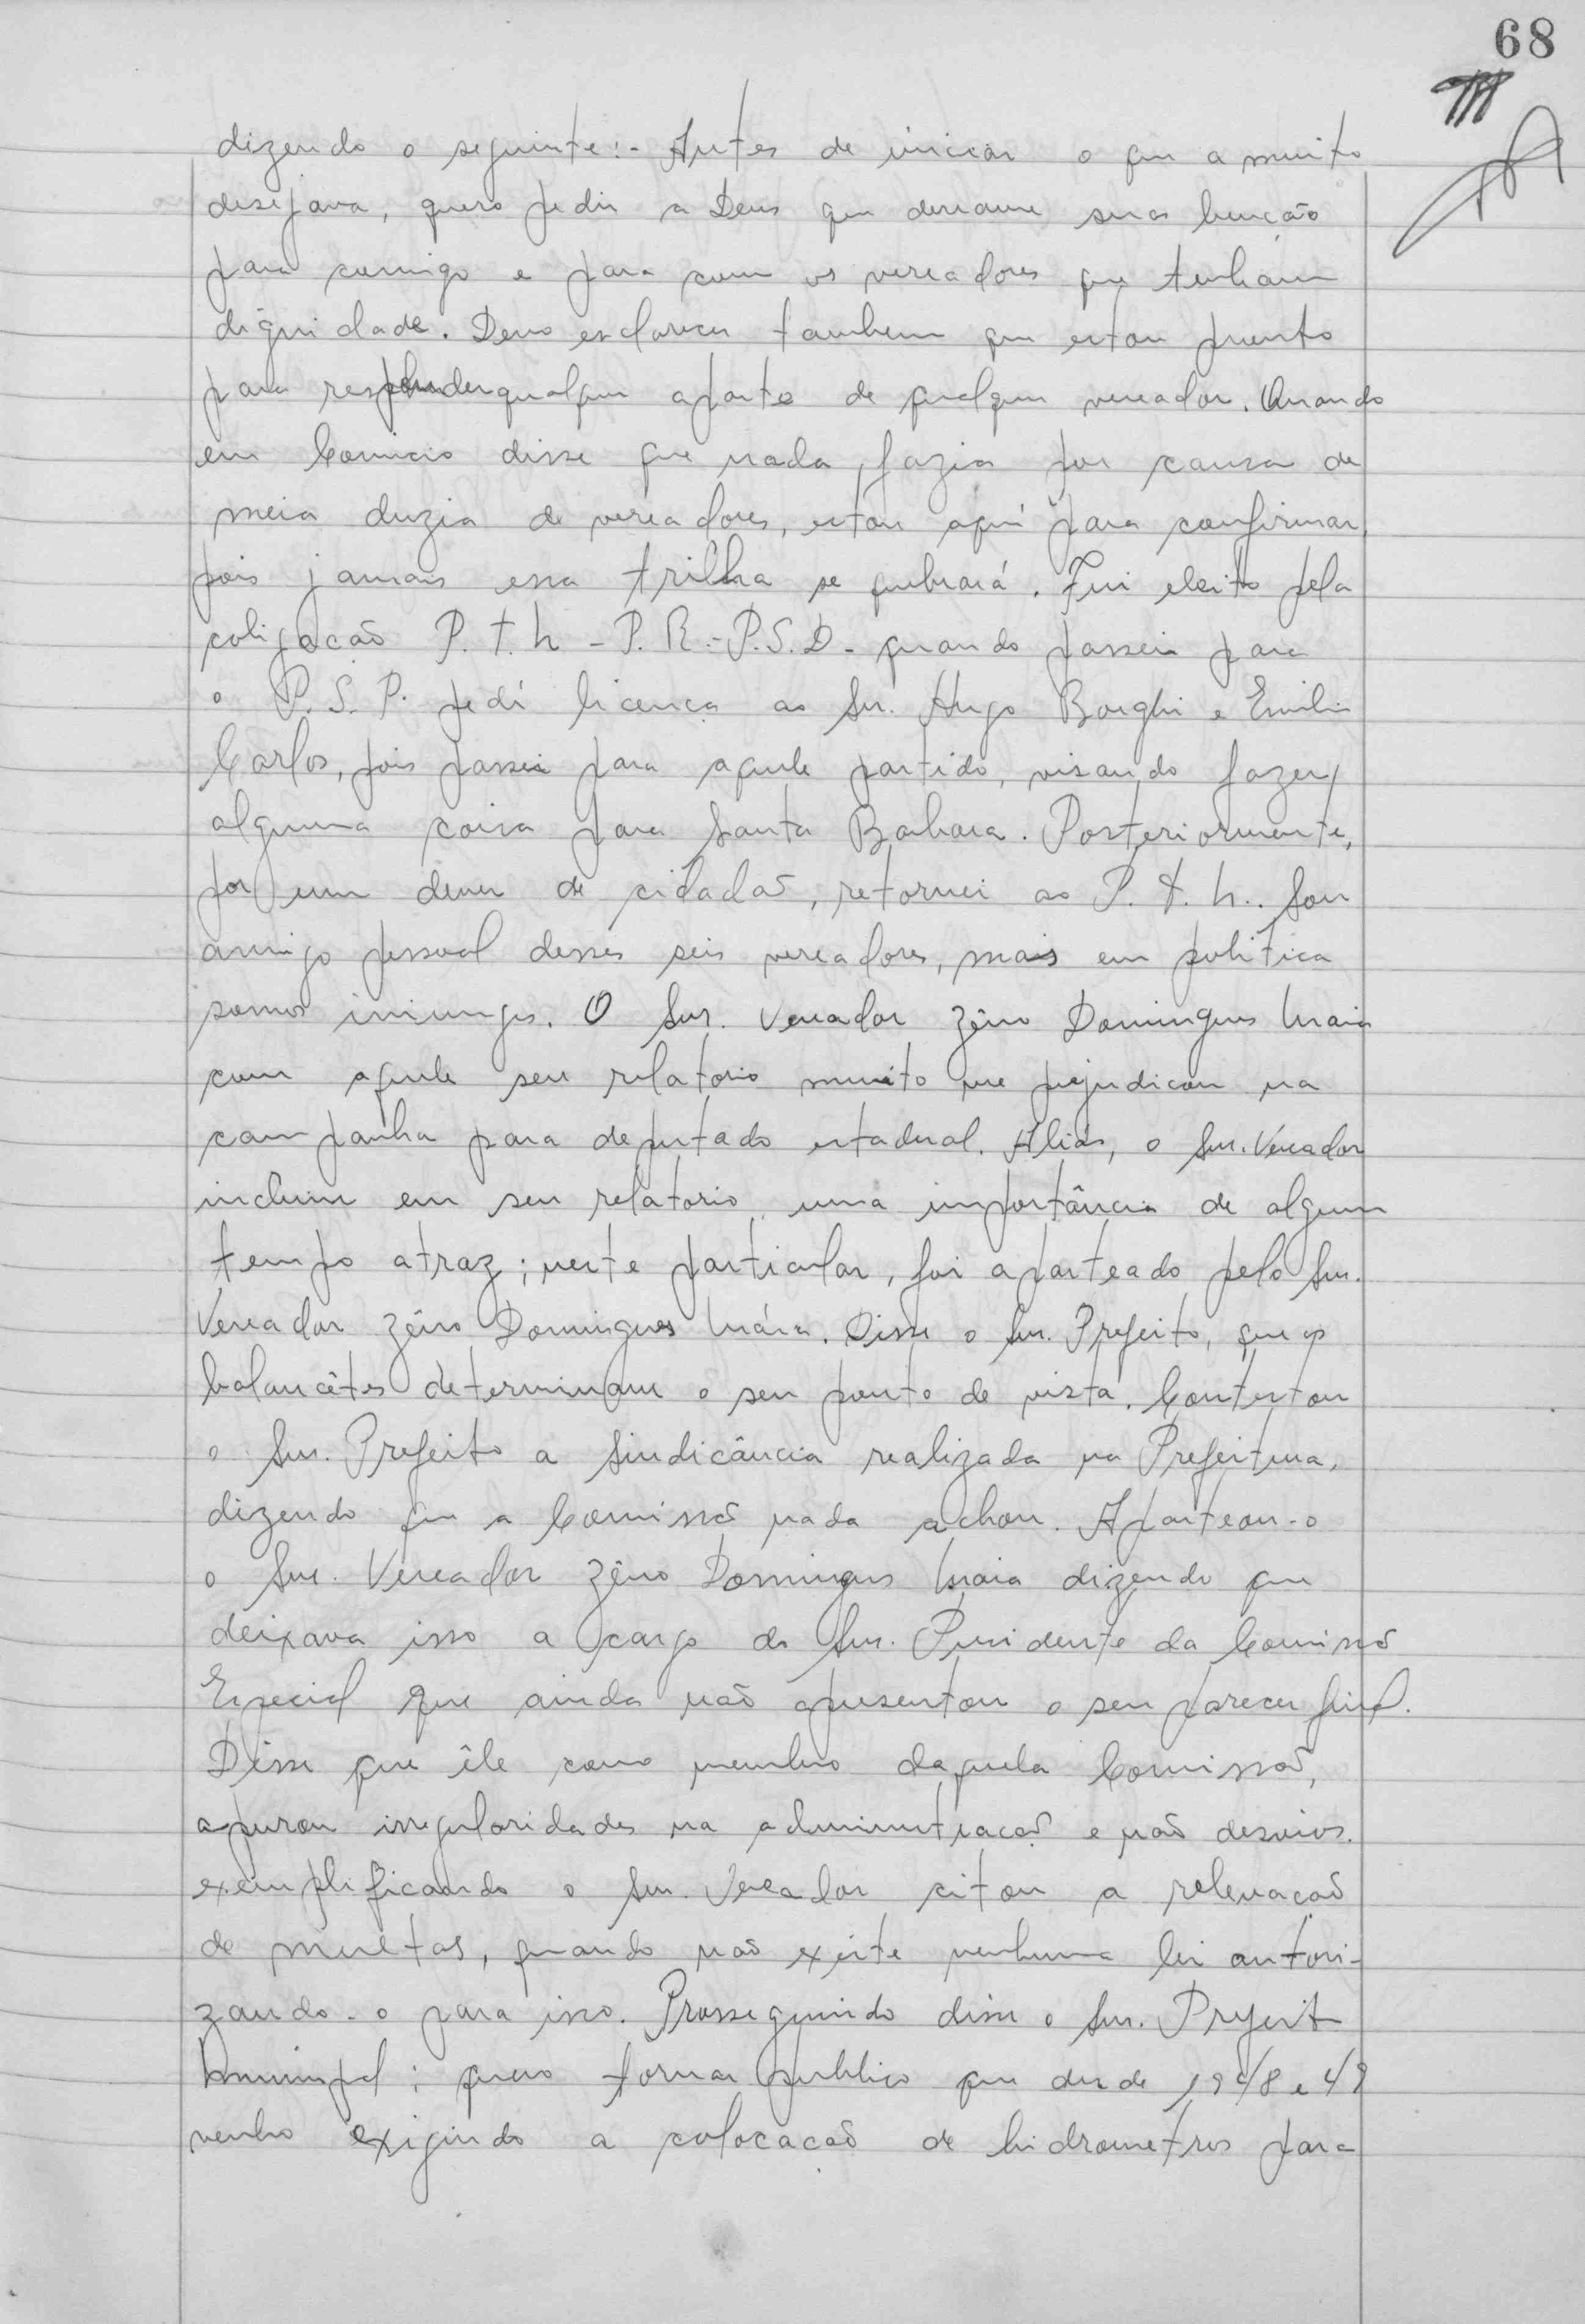 68
dizendo o seguinte:- Antes de iniciar o que a muito
desejava, quero pedir a Deus que derrame suas benção
para comigo e para com os vereadores que tenham
dignidade. Devo esclarecer tambem que estou pronto
para responder qualquer aparte de qualquer vereador. Quando
em Comicio disse que nada fazia por causa de
meia duzia de vereadores, estou aqui para confirmar,
pois jamais essa trilha se quebrará. Fui eleito pela
coligação P.T.N - P.R.- P.S.D - quando passei para
o P.S.P. pedi licença ao Snr. Hugo Borghi e Emilio
Carlos, pois passei para aquele partido, visando fazer
alguma coisa para Santa Barbara. Posteriormente,
por um dever de cidadão, retornei ao P.T.N.. Sou
amigo pessoal desses seis vereadores, mais em politica
somos inimigos. O Snr. Vereador Zêno Domingues Maia
com aquele seu relatorio muito me prejudicou na
campanha para deputado estadual. Aliás, o Snr. Vereador
incluiu em seu relatorio, uma importância de algum
tempo atraz; neste particular, foi aparteado pelo Snr.
Vereador Zêno Domingues Máia. Disse o Snr. Prefeito, que os
balancêtes determinam o seu ponto de vista. Contestou
o Snr. Prefeito a Sindicância realizada na Prefeitura,
dizendo que a Comissão nada achou. Aparteou-o
o Snr. Vereador Zêno Domingues Maia dizendo que
deixava isso a cargo do Snr. Presidente da Comissão
Especial que ainda não apresentou o seu parecer final.
Disse que êle como membro daquela Comissão,
apurou irregularidades na administração e não desvios.
exemplificando o Snr. Vereador citou a relevação
de multas, quando não existe nenhuma lei autori-
zando-o para isso. Prosseguindo disse o Snr. Prefeito
Municipal: quero tornar publico que desde 1948 e 49
venho exigindo a colocação de hidrometros para